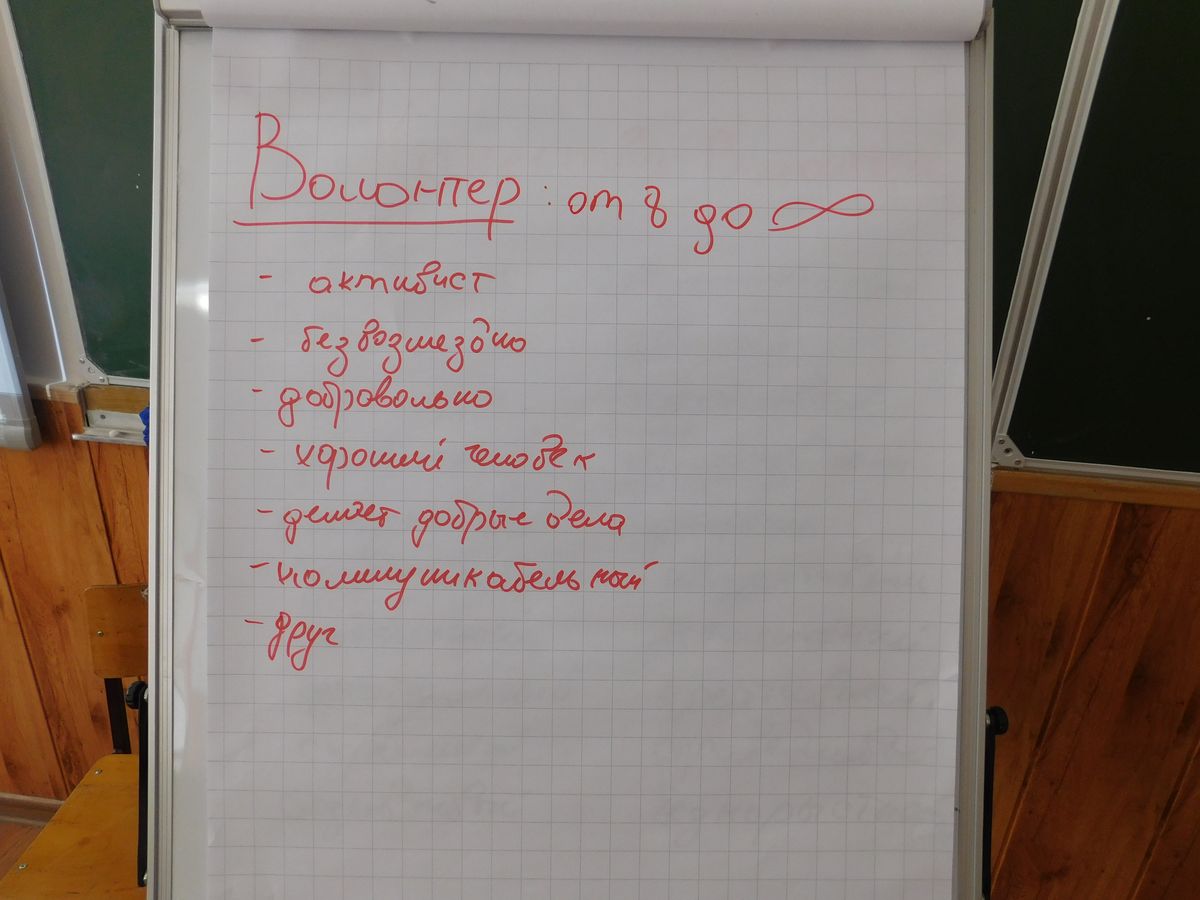 Волонтер : от 8 до ∞
- активист
- безвозмездно
- добровольно
- хороший человек
- делает добрые дела
- коммуникабельный
- друг